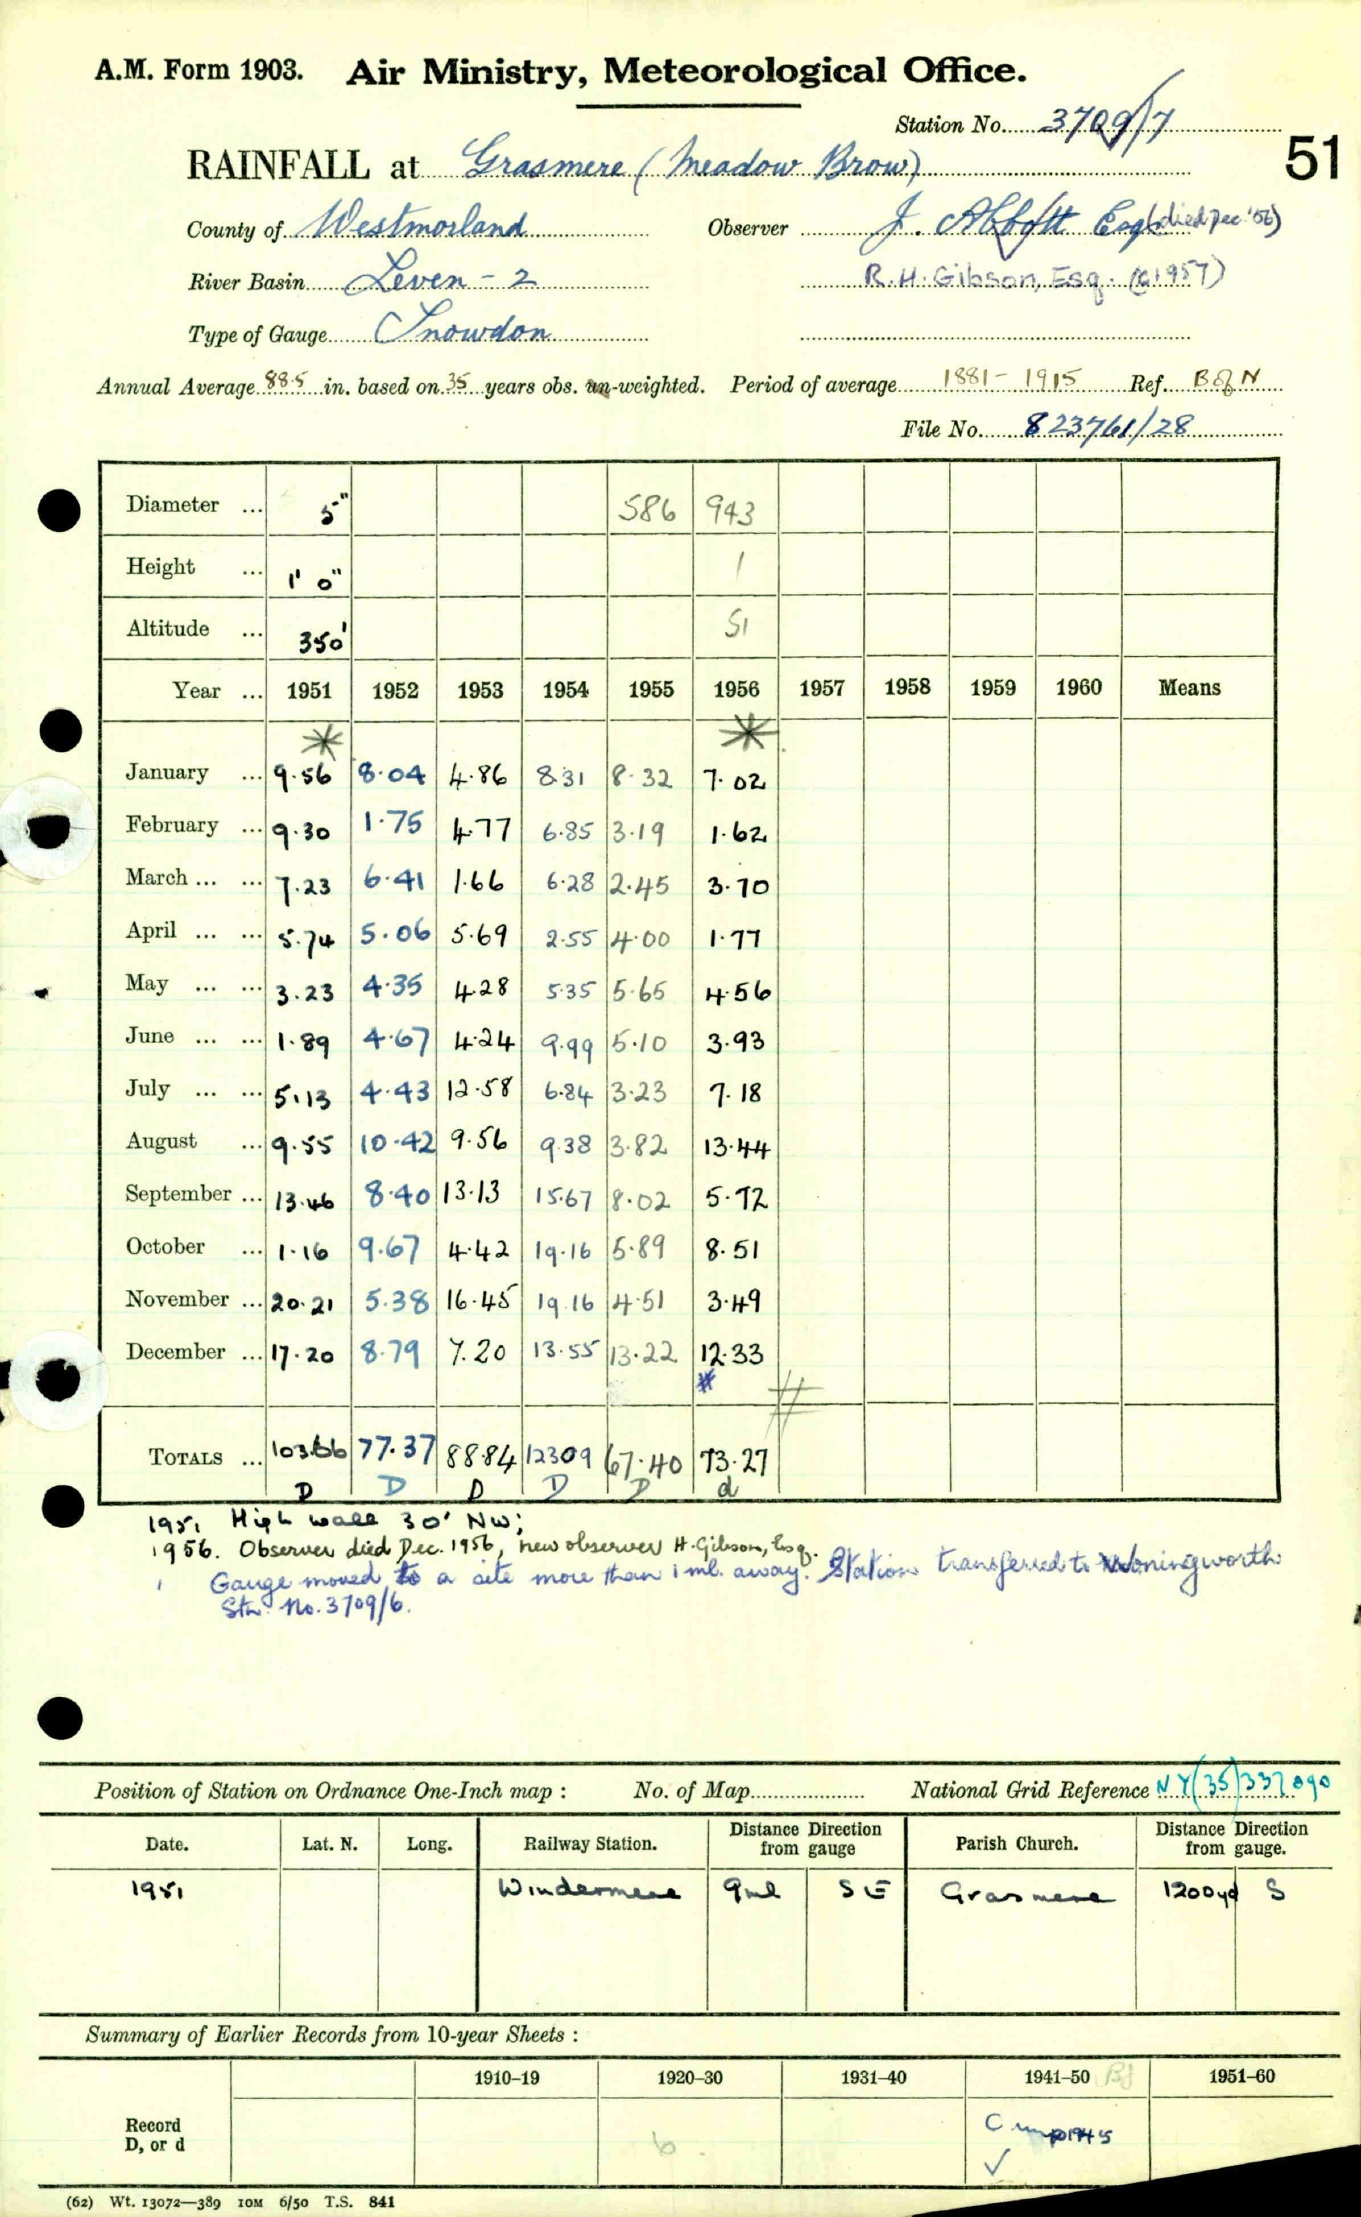 A.M. Form 1903. Air Ministry, Meteorological Office.
Station No. 3709/7
51
RAINFALL at Grasmere (Meadow Brow)
County of Westmorland Observer J. Abbott Esq (died Dec. '56)
River Basin Leven - 2 R. H. Gibson, Esq. (1957)
Type of Gauge Snowdon
Annual Average 88.5 in. based on 35 years obs. un-weighted. Period of average 1881 - 1915 Ref. B of N
File No. 823761/28
Diameter ... 5" 586 943
Height ... 1' 0" 1
Altitude ... 350' 51
Year ... 1951 1952 1953 1954 1955 1956 1957 1958 1959 1960 Means
* *
January ... 9.56 8.04 4.86 8.31 8.32 7.02
February ... 9.30 1.75 4.77 6.85 3.19 1.62
March ... ... 7.23 6.41 1.66 6.28 2.45 3.70
April ... ... 5.74 5.06 5.69 2.55 4.00 1.77
May ... ... 3.23 4.35 4.28 5.35 5.65 4.56
June ... ... 1.89 4.67 4.24 9.99 5.10 3.93
July ... ... 5.13 4.43 12.58 6.84 3.23 7.18
August ... 9.55 10.42 9.56 9.38 3.82 13.44
September ... 13.46 8.40 13.13 15.67 8.02 5.72
October ... 1.16 9.67 4.42 19.16 5.89 8.51
November ... 20.21 5.38 16.45 19.16 4.51 3.49
December ... 17.20 8.79 7.20 13.55 13.22 12.33
# #
TOTALS ... 103.66 77.37 88.84 123.09 67.40 73.27
D D D D D d
1951 High wall 30' NW;
1956. Observer died Dec. 1956, new observer H. Gibson, Esq.
Gauge moved to a site more than 1 ml. away. Station transferred to Woningworth
Stn. No. 3709/6.
Position of Station on Ordnance One-Inch map : No. of Map National Grid Reference NY(35)337090
Date. Lat. N. Long. Railway Station. Distance from Direction gauge Parish Church. Distance from Direction gauge.
1951 Windermere 9ml SE Grasmere 1200yd S
Summary of Earlier Records from 10-year Sheets :
1910–19 1920–30 1931–40 1941–50 1951–60
Record D, or d C 1945
✓
(62) Wt. 13072—389 10M 6/50 T.S. 841